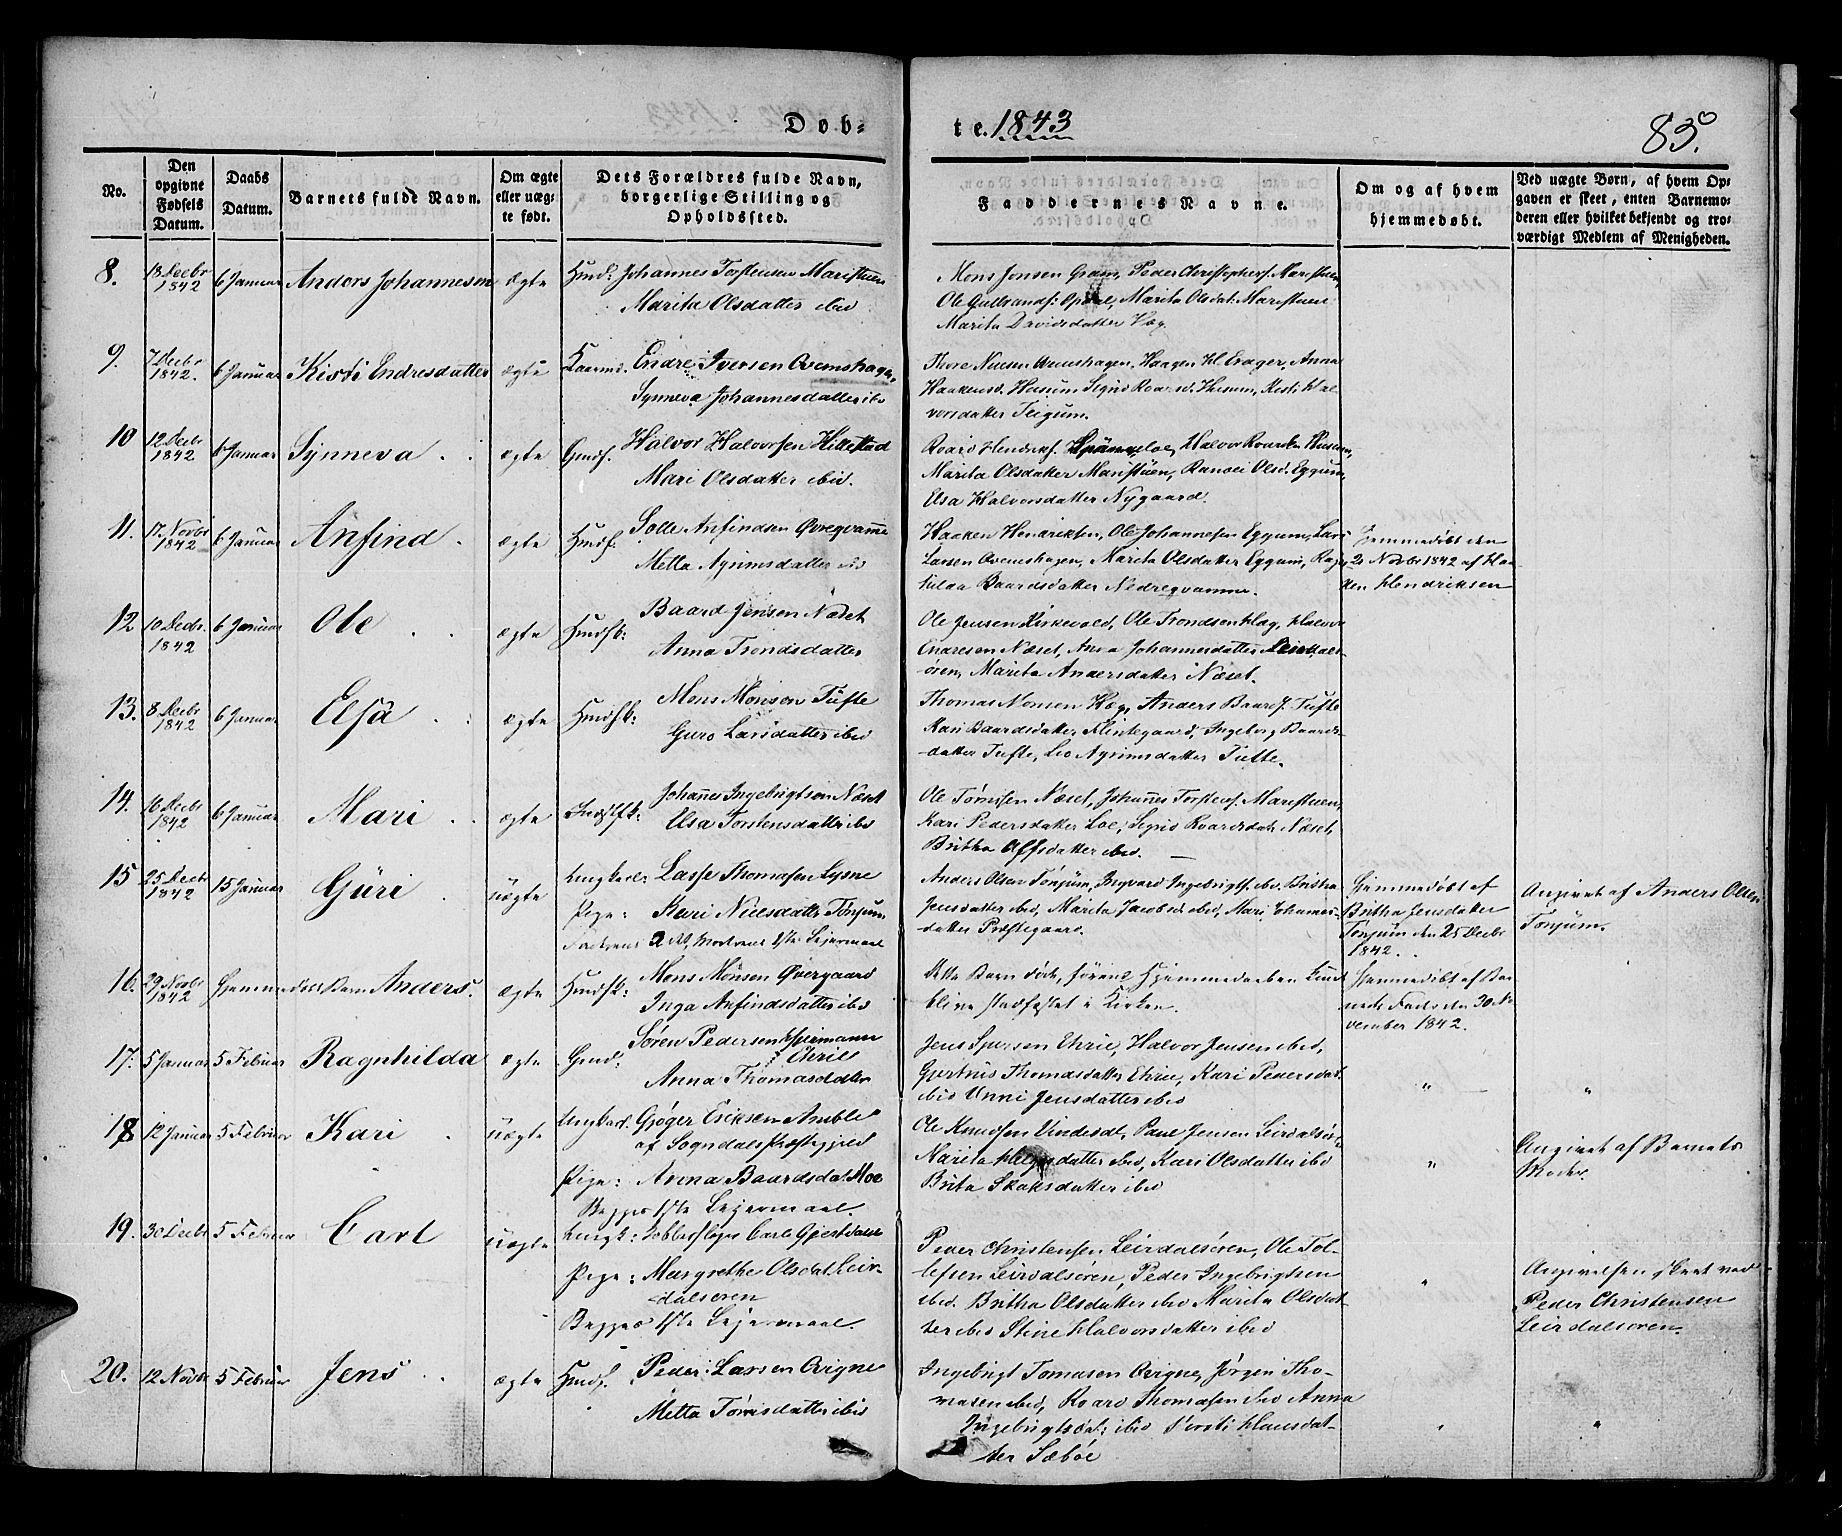 Døb-
te. 1843
83.
No.
Den opgivne Fødsels Datum.
Daabs Datum.
Barnets fulde Navn.
Om ægte eller uægte født.
Dets Forældres fulde Navn, borgerlige Stilling og Opholdssted.
Faddernes Navne.
Om og af hvem hjemmedøbt.
Ved uægte Børn, af hvem Opgaven er skeet, enten Barnemoderen eller hvilket bekjendt og troværdigt Medlem af Menigheden.
8. 13 Decbr 1842 6 Januar Anders Johannesen ægte Huusm: Johannes Torstensen Maristuen
Marita Olsdatter ibid
Mons Jensen Gram, Peder Christophers. Maristuen,
Ole Gulbrands: Opdal, Marita Olsdat: Maristuen
Marita Davidsdatter Hæg
9. 7 Decbr 1842. 6 Januar Kisti Endresdatter ægte Kaarm. Endre Iversen Qvemshagen,
Synneva Johannesdatter ibid
Thore Nielsen Qvemshagen, Haagen Hl. Erager, Anna
Haakensd. Husum, Sigrid Roarsd. Husum, Kisti Hal-
vorsdatter Teigum.
10 12 Decbr 1842 6 Januar Synneva ægte Gmdf. Halvor Halvorsen Hillestad
Mari Olsdatter ibid.
Roard Hendriks. Loe, Halvor Roardsen Husum,
Marita Olsdatter Maristuen, Ranvei Olsd. Eggum,
Elsa Halvorsdatter Nygaard.
11. 17 Novbr 1842 6 Januar Anfind ægte Huusf. Solle Anfindsen Øvreqvamme
Metta Agrimsdatter ibid
Haaken Henriksen, Ole Johannesen Eggum, Lars
Larsen Qvemshagen, Marita Olsdatter Eggum, Ragn-
hilda Baardsdatter Nedreqvamme.
Hjemmedøbt den
20 Novbr 1842 af Haa-
ken Hendriksen
12 10 Decbr. 1842 6 Januar Ole ægte Huusfk: Baard Jensen Næset
Anna Trondsdatter
Ole Jensen Kirkevold, Ole Trondsen Hag, Halvor
Endresen Næset, Anna Johannesdatter Leirdals-
øren, Marita Andersdatter Næset.
13. 8 Decbr 1842 6 Januar Elsa ægte Huusfk: Mons Monsen Tufte
Guro Larsdatter ibid
Thomas Monsen Hæg, Anders Baards. Tufte
Kari Baardsdatter Klintegaard, Ingeborg Baards-
datter Tufte, Agrimsdatter Tufte.
14. 16 Decbr 1842 6 Januar Mari ægte Indstfk: Johannes Ingebrigtsen Næset
Elsa Torstensdatter ibid
Ole Tørrisen Næset, Johannes Torstens. Maristuen,
Kari Pedersdatter Loe, Sigrid Roardsdat. Næset,
Britha Olfsdatter ibid.
15 25 Decbr 1842 15 Januar Güri uægte Ungkarl: Lasse Thomasen Lysne
Pige: Kari Nielsdatter Tønjum
Faderens 2det, Moderens 1ste Leiermaal
Anders Olsen Tønjum, Ingvard Ingebrigts. ibid, Britha
Jensdatter ibid, Marita Jacobsd. ibid, Mari Johannes-
datter Præstegaard.
Hjemmedøbt af
Britha Jensdatter
Tønjum den 25 Decbr
1842.
Angivet af Anders Olsen
Tonjum.
16. 29 Novbr 1842 Hjemmedøbt Barn Anders. ægte Huusfk: Mons Monsen Øvregaard
Inga Anfindsdatter ibid
Dette Barn døde, førend Hjemmedaaben kunde
blive stadfæstet i Kirken.
Hjemmedøbt af Bar-
nets Fader den 30 No-
vember 1842.
17. 5 Januar 5 Februar Ragnhilda ægte Gmd: Søren Pedersen Hjermann
Ehrie
Anna Thomasdatter
Jens Spersen Ehrie, Halvor Jensen ibid,
Gjertrus Thomasdatter Ehrie, Kari Pedersdat.
ibid Unni Jensdatter ibid
"
"
18 12 Januar 5 Februar Kari uægte Ungkarl: Gjøger Eriksen Amble
af Sogndals Præstegjeld
Pige: Anna Baardsdat. Moe
Begges 1ste Leiermaal.
Ole Knudsen Vindedal, Paul Jensen Leirdalsør,
Marita Helgesdatter ibid, Kari Olsdatter ibid
Brita Skaksdatter ibid
"
Angivet af Barnets
Moder.
19. 30 Decbr 5 Februar Carl uægte Ungk: Kobberslager Carl Gjestdahl
Pige: Margrethe Olsdat. Leir-
dalsøren
Begges 1ste Leiermaal.
Peder Christensen Leirdalsøren, Ole Tol-
lefsen Leirdalsøren, Peder Ingebrigtsen
ibid. Britha Olsdatter ibid Marita Olsdat-
ter ibid Stine Halvorsdatter ibid
"
Angivelsen skeet ved
Peder Christensen
Leirdalsøren.
20. 12 Novbr 5 Februar Jens ægte Huusf. Peder Larsen Qvigne
Metta Tørrisdatter ibid
Ingebrigt Tomasen Qvigne, Jørgen Tho-
masen ibid, Roard Thomasen ibid Anna
Ingebrigtsdat: ibid Kirsti Clausdat-
ter Sæbøe
"
"